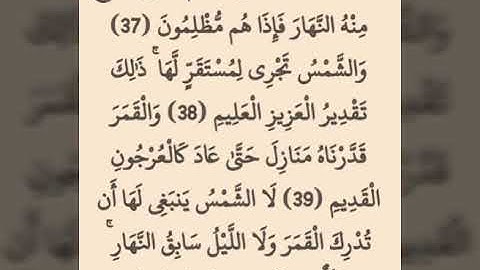 مِنْهُ النَّهَارَ فَإِذَا هُم مُّظْلِمُونَ (37)
وَالشَّمْسُ تَجْرِى لِمُسْتَقَرٍّ لَّهَا ۚ ذَٰلِكَ
تَقْدِيرُ الْعَزِيزِ الْعَلِيمِ (38) وَالْقَمَرَ
قَدَّرْنَاهُ مَنَازِلَ حَتَّىٰ عَادَ كَالْعُرْجُونِ
الْقَدِيمِ (39) لَا الشَّمْسُ يَنبَغِى لَهَا أَن
تُدْرِكَ الْقَمَرَ وَلَا اللَّيْلُ سَابِقُ النَّهَارِ ۚ